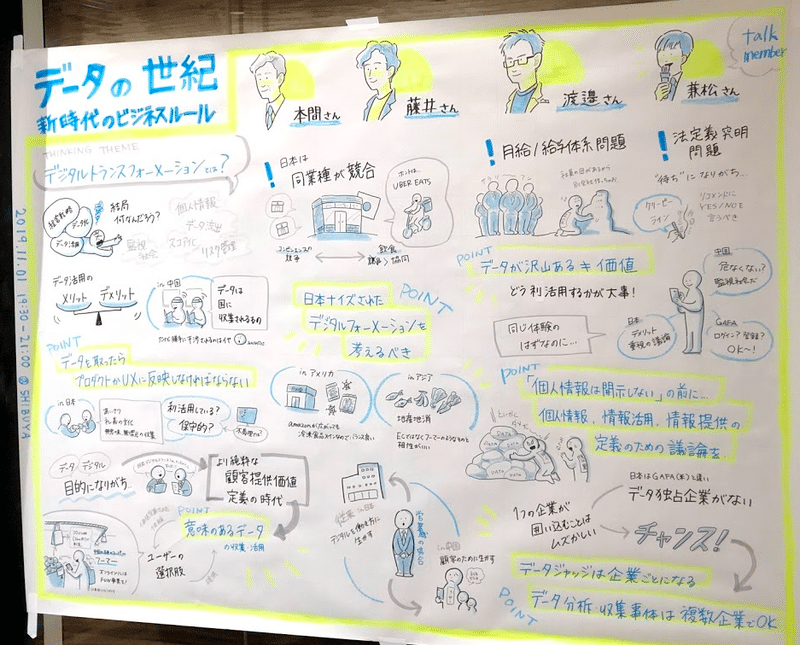 データの世紀
新時代のビジネスルール
本間さん
藤井さん
渡邉さん
兼松さん
talk
member
THINKING THEME
デジタルトランスフォーメーションとは?
結局
何なんだろう?
個人情報
データ流出
監視
社会
スコアに
リスク管理
2019.11.01 19:30-21:00 @SHIBUYA
!
日本は
同業種が競合
UBER EATS
飲食
!
月給/給与体系問題
サラリーマン
!
法定義究明
問題
"待ち"になりがち…
クリーピー
ライン
リコメンドに
YES/NOを
言うべき
データ活用の
メリット
デメリット
in 中国
データは
国に
収集されるもの
POINT
日本ナイズされた
デジタルフォーメーションを
考えるべき
POINT
データが沢山ある≠価値
どう利活用するかが大事!
同じ体験の
はずなのに…
中国
危なくない?
日本
デメリット
重視の議論
GAFA
ログイン?登録?
OK〜!
POINT
データを取ったら
プロダクトかUXに反映しなければならない
in 日本
利活用している?
保守的?
in アメリカ
in アジア
地産地消
POINT
「個人情報は開示しない」の前に…
個人情報、情報活用、情報提供の
定義のための議論を
データ
デジタル
目的になりがち…
より純粋な
顧客提供価値
定義の時代
POINT
意味のあるデータ
の収集・活用
ユーザーの
選択肢
フーマー
従業 in 日本
デジタルを働き方に
生かす
in 中国
顧客のために生かす
日本はGAFA(米)と違い
データ独占企業がない
1つの企業が
囲い込むことは
ムズかしい
チャンス!
データジャッジは企業ごとになる
POINT
データ分析・収集事体は複数企業でOK